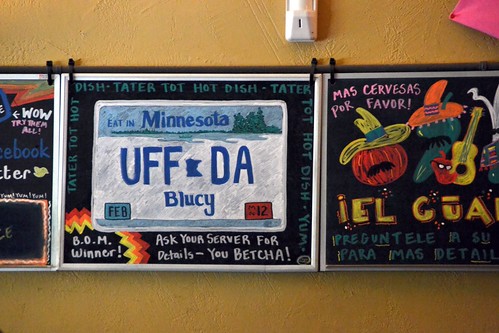 WOW
TRY THEM
ALL!
cebook
tter
YUM! YUM! YUM!
DISH - TATER TOT HOT DISH - TATER
TATER TOT HOT
TOT HOT DISH - YUM -
EAT IN Minnesota
UFF DA
Blucy
FEB
12
B.O.M.
Winner!
ASK YOUR SERVER FOR
DETAILS - YOU BETCHA!
MAS CERVESAS
POR FAVOR!
¡EL GÜA
PREGUNTELE A SU
PARA MAS DETAIL